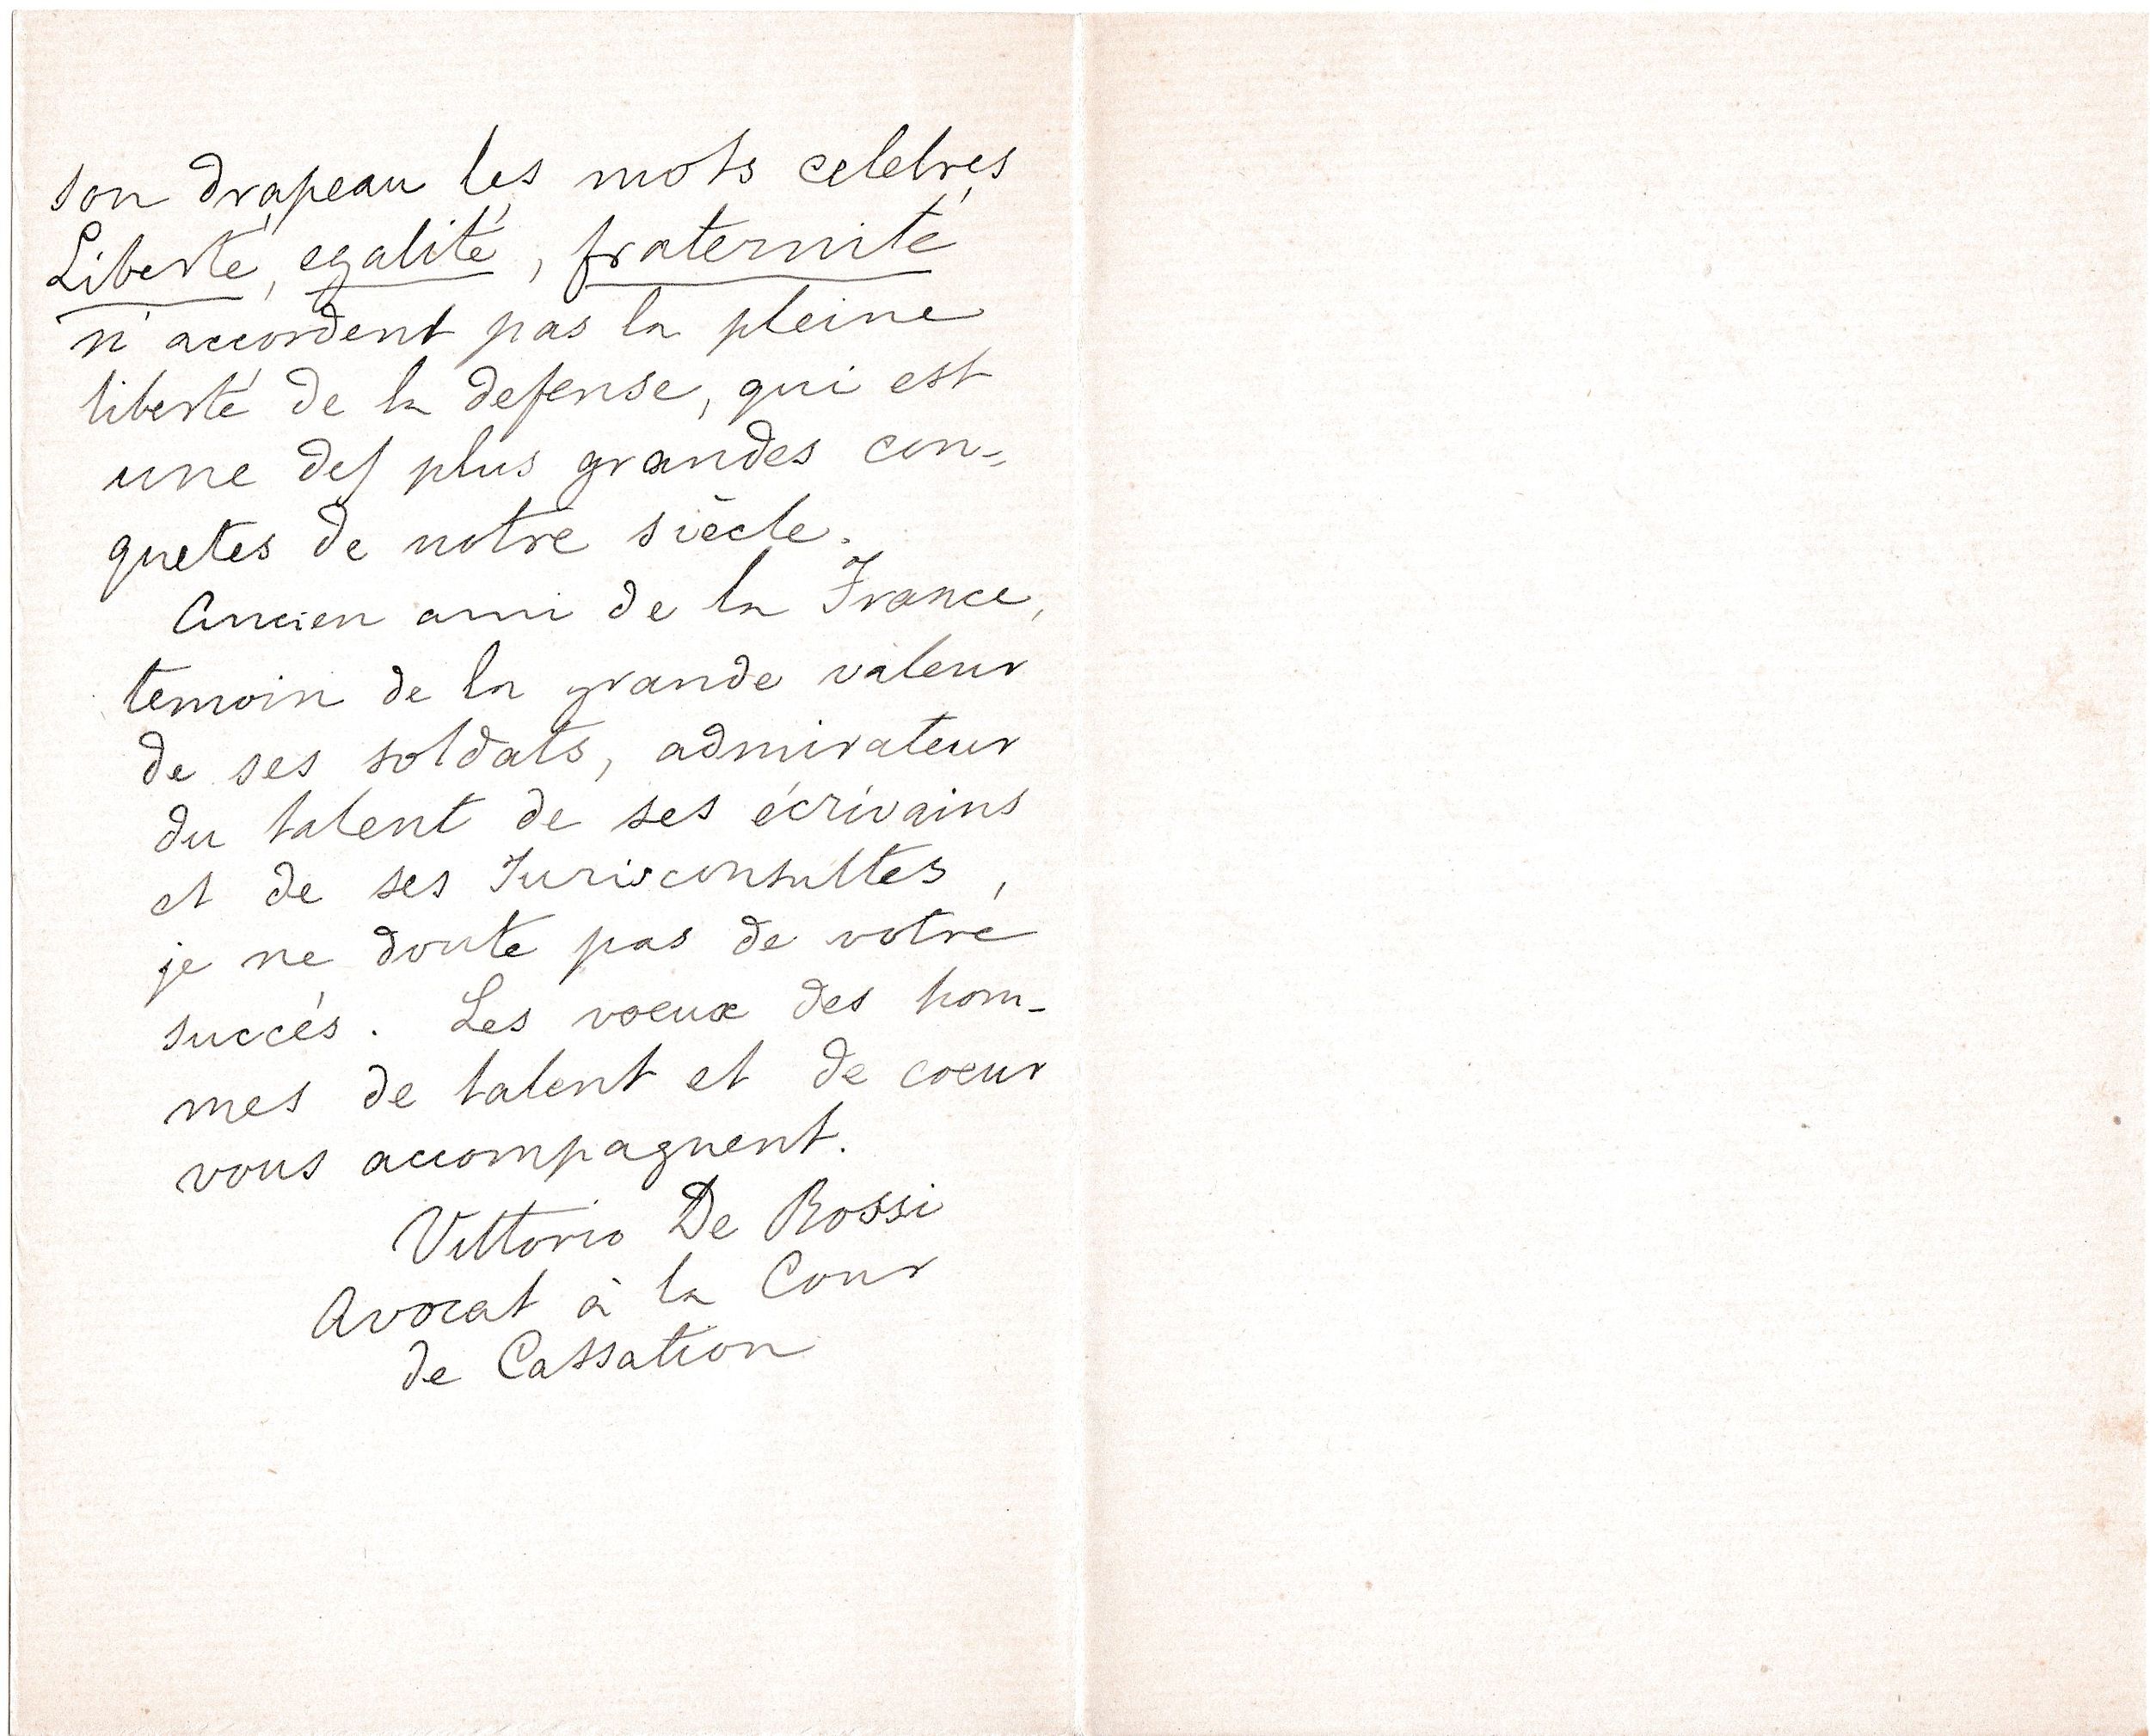 son drapeau les mots celebres
Liberté, egalité, fraternité
n'accordent pas la pleine
liberté de la defense, qui est
une des plus grandes con-
quetes de notre siècle.
Ancien ami de la France,
temoin de la grande valeur
de ses soldats, admirateur
du talent de ses écrivains
et de ses Jurisconsultes,
je ne doute pas de votre
succés. Les voeux des hom-
mes de talent et de coeur
vous accompagnent.
Vittorio De Rossi
Avocat à la Cour
de Cassation